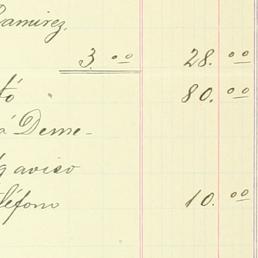 Ramirez.
3.00 28.00
tó 80.00
á Deme-
g aviso
léfono 10.00